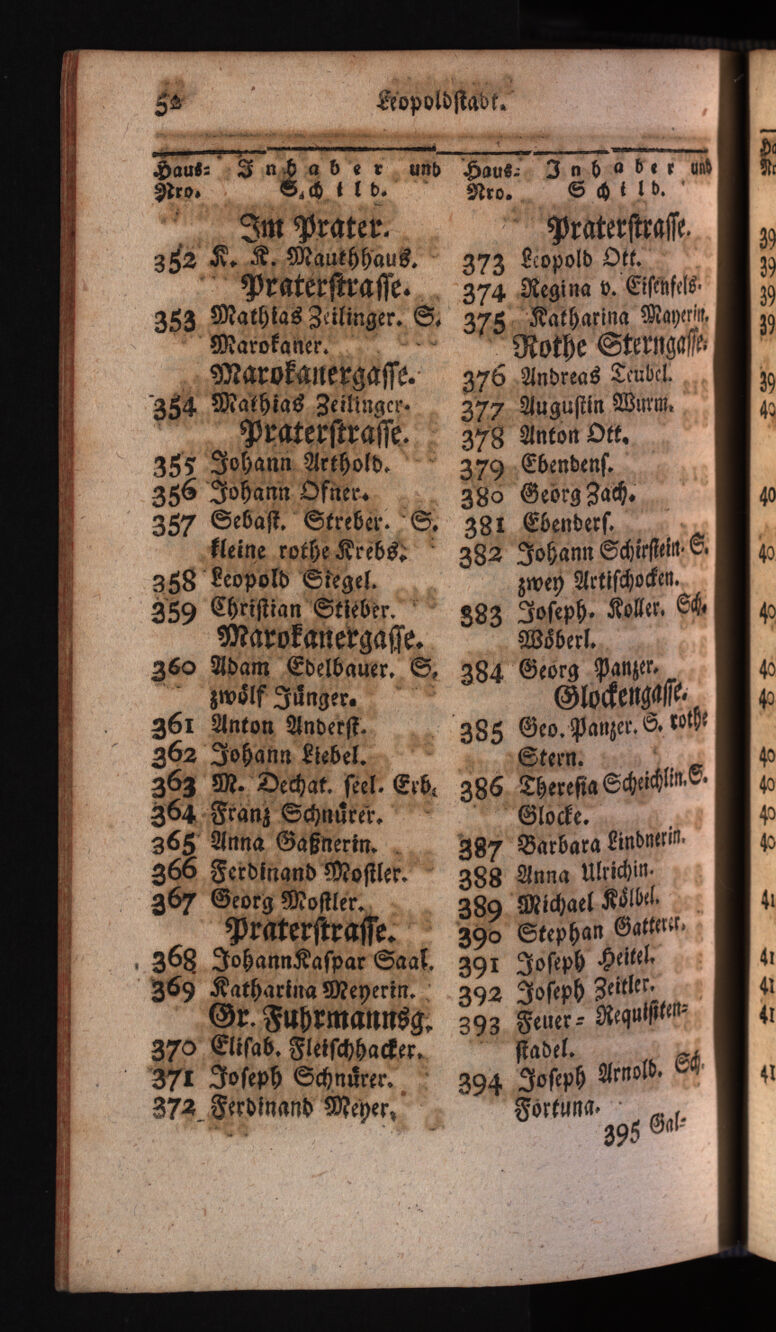 52 Leopoldstadt.
Haus= Inhaber und
Nro. Schild.
Im Prater.
352 K. K. Mauthhaus.
Praterstrasse.
353 Mathias Zeilinger. S.
Marokaner.
Marokanergasse.
354 Mathias Zeilinger.
Praterstrasse.
355 Johann Arthold.
356 Johann Ofner.
357 Sebast. Streber. S.
kleine rothe Krebs.
358 Leopold Siegel.
359 Christian Stieber.
Marokanergasse.
360 Adam Edelbauer. S.
zwölf Jünger.
361 Anton Anderst.
362 Johann Liebel.
363 M. Dechat. seel. Erb.
364 Franz Schnürer.
365 Anna Gaßnerin.
366 Ferdinand Mostler.
367 Georg Mostler.
Praterstrasse.
368 Johann Kaspar Saal.
369 Katharina Meyerin.
Gr. Fuhrmannsg.
370 Elisab. Fleischhacker.
371 Joseph Schnürer.
372 Ferdinand Meyer.
Haus= Inhaber und
Nro. Schild.
Praterstrasse.
373 Leopold Ott.
374 Regina v. Eisenfels.
375 Katharina Mayerin.
Rothe Sterngasse.
376 Andreas Teubel.
377 Augustin Wurm.
378 Anton Ott.
379 Ebendens.
380 Georg Zach.
381 Ebenders.
382 Johann Schirstein. S.
zwey Artischocken.
383 Joseph. Koller. Sch.
Wöberl.
384 Georg Panzer.
Glockengasse.
385 Geo. Panzer. S. rothe
Stern.
386 Theresia Scheichlin. S.
Glocke.
387 Barbara Lindnerin.
388 Anna Ulrichin.
389 Michael Kölbel.
390 Stephan Gatterer.
391 Joseph Heitel.
392 Joseph Zeitler.
393 Feuer= Requisiten=
stadel.
394 Joseph Arnold. Sch.
Fortuna.
395 Gal=